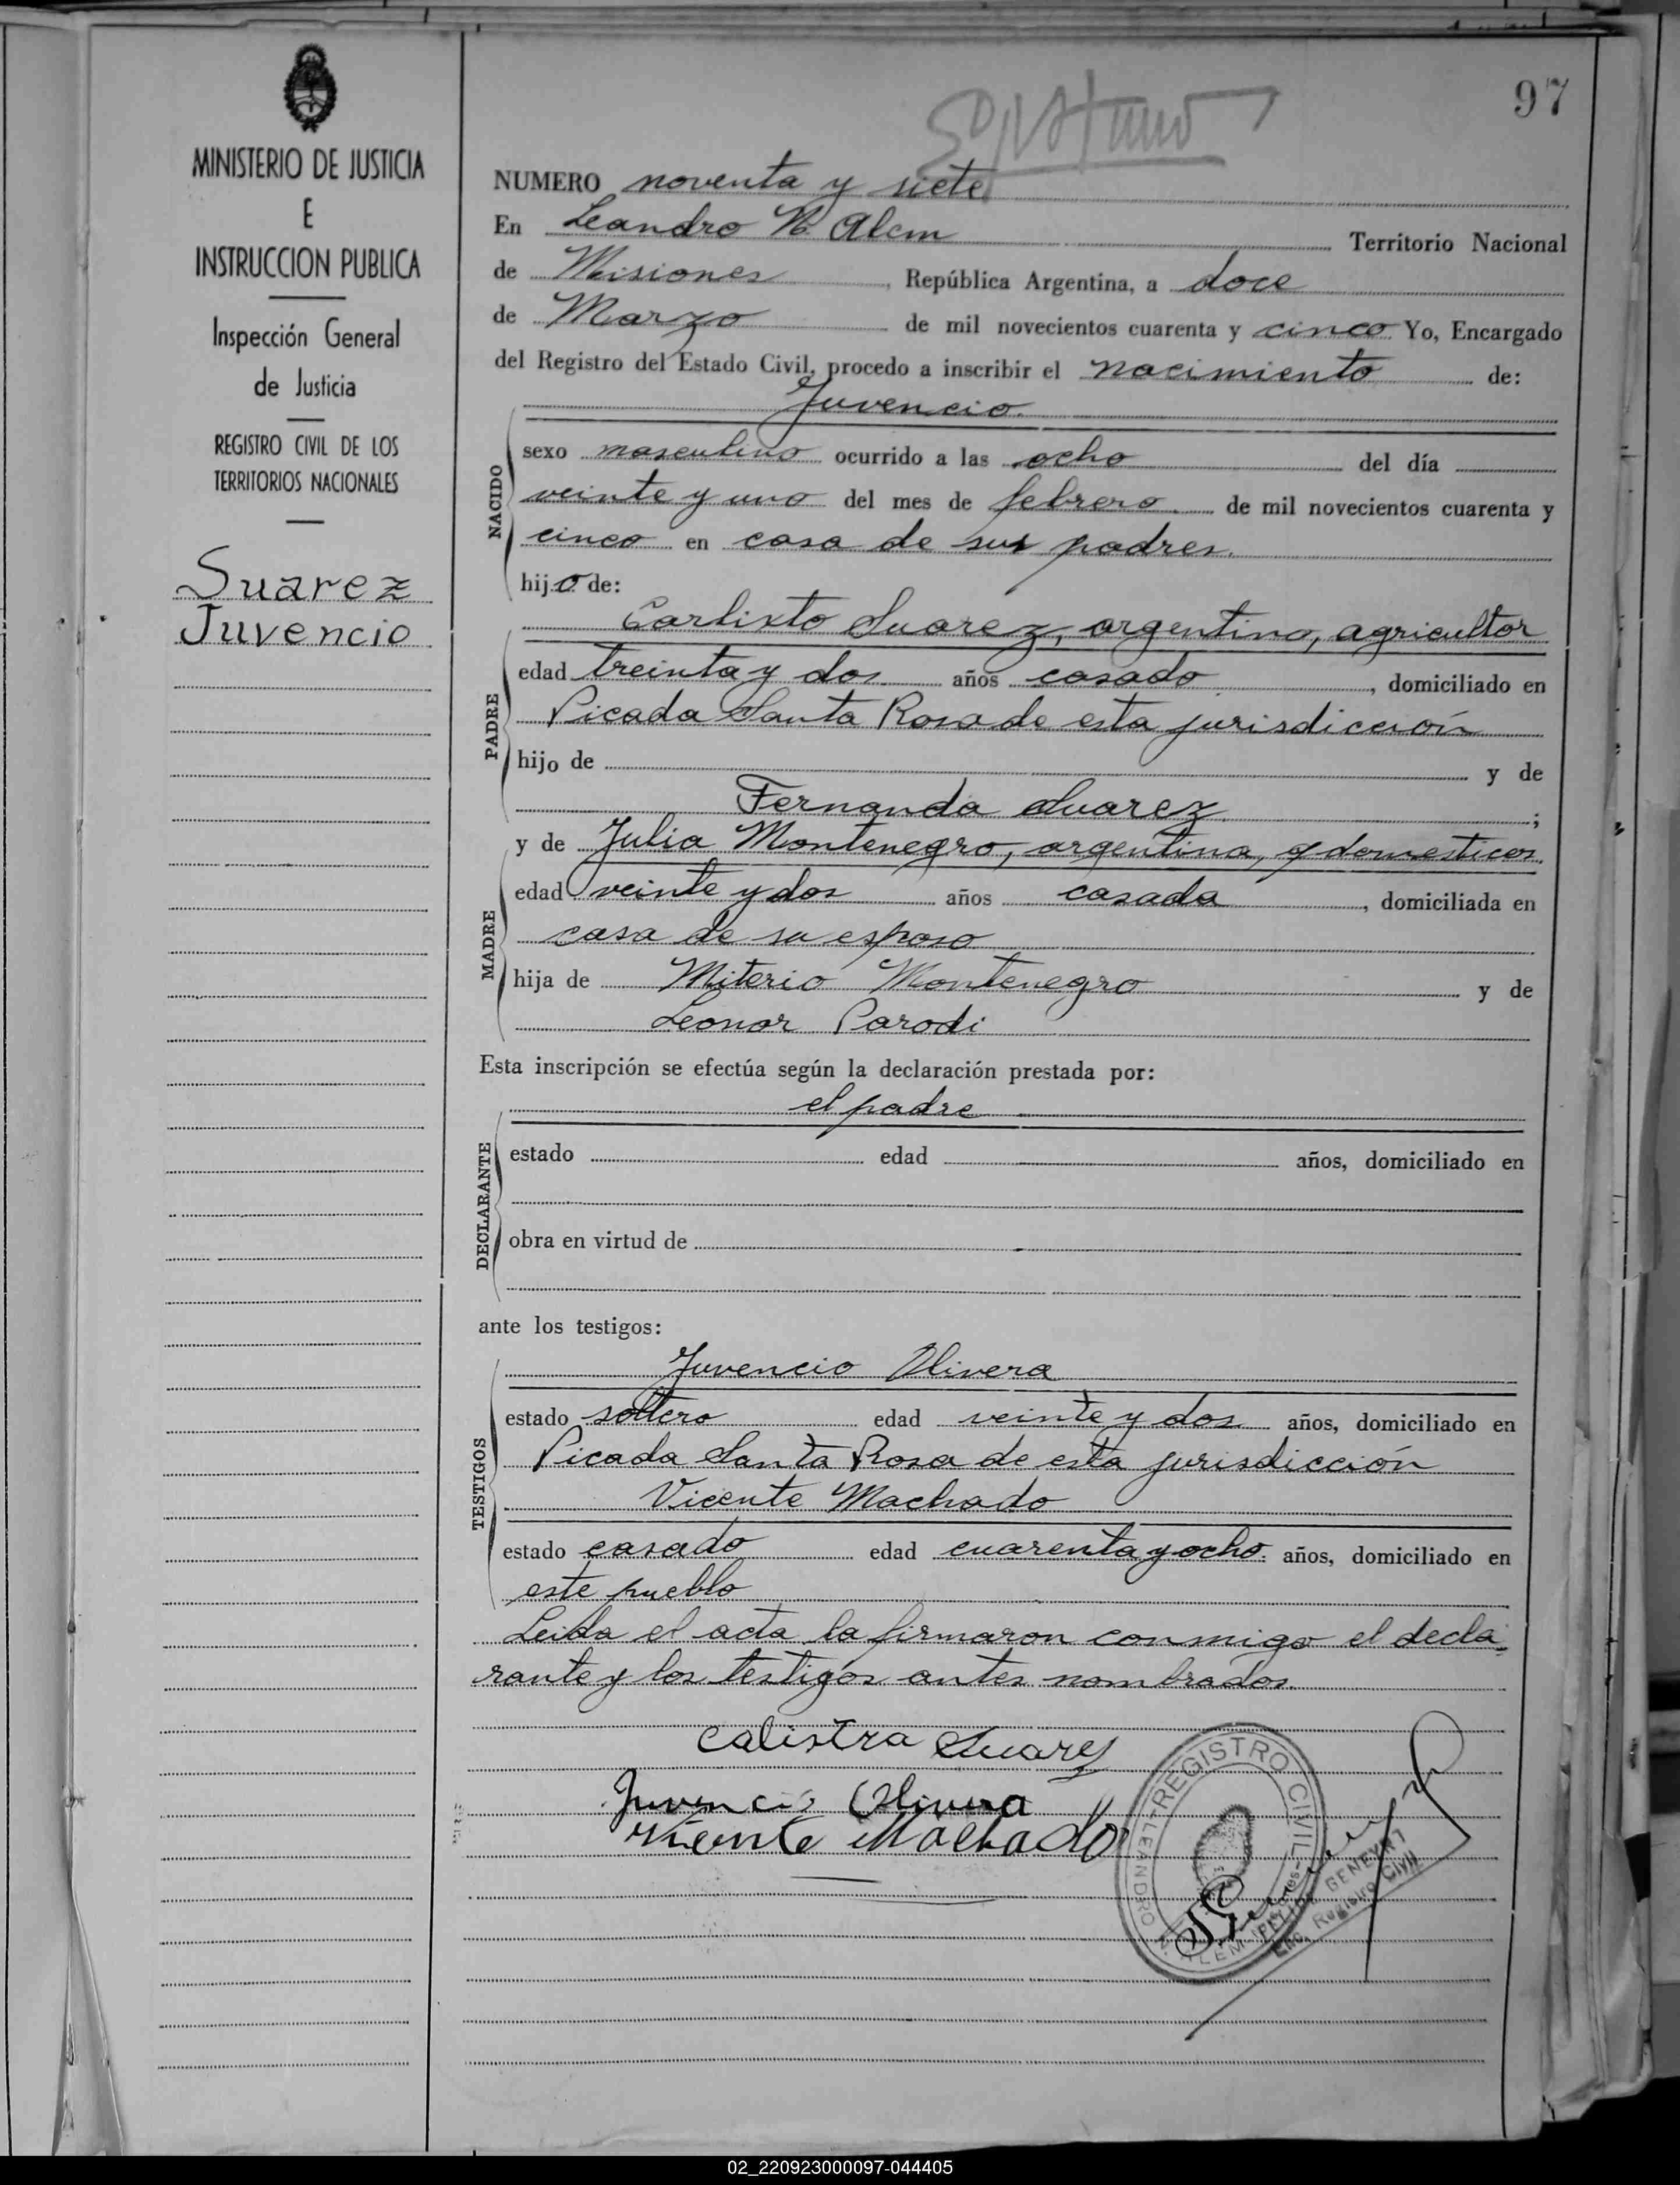 97
MINISTERIO DE JUSTICIA
E
INSTRUCCION PUBLICA
Inspección General
de Justicia
REGISTRO CIVIL DE LOS
TERRITORIOS NACIONALES
Suarez
Juvencio
NUMERO noventa y siete
En Leandro N. Alem Territorio Nacional
de Misiones, República Argentina, a doce
de Marzo de mil novecientos cuarenta y cinco Yo, Encargado
del Registro del Estado Civil, procedo a inscribir el nacimiento de:
Juvencio.
NACIDO
sexo masculino ocurrido a las ocho del día
veinte y uno del mes de febrero. de mil novecientos cuarenta y
cinco en casa de sus padres.
hijo de:
PADRE
Carlixto Suarez, argentino, agricultor
edad treinta y dos años casado, domiciliado en
Picada Santa Rosa de esta jurisdicción
hijo de y de
Fernanda Suarez;
MADRE
y de Julia Montenegro, argentina, q domesticos
edad veinte y dos años casada, domiciliada en
casa de su esposo
hija de Miterio Montenegro y de
Leonor Parodi
Esta inscripción se efectúa según la declaración prestada por:
DECLARANTE
el padre
estado edad años, domiciliado en
obra en virtud de
ante los testigos:
TESTIGOS
Juvencio Olivera
estado soltero edad veinte y dos años, domiciliado en
Picada Santa Rosa de esta jurisdicción
Vicente Machado
estado casado edad cuarenta y ocho. años, domiciliado en
este pueblo
Leida el acta la firmaron conmigo el decla-
rante y los testigos antes nombrados.
Calistra Suarez
Juvencio Olivera
Vicente Machado
REGISTRO CIVIL
LEANDRO N. ALEM
GENEYRT
Enc. Registro Civil
02_220923000097-044405